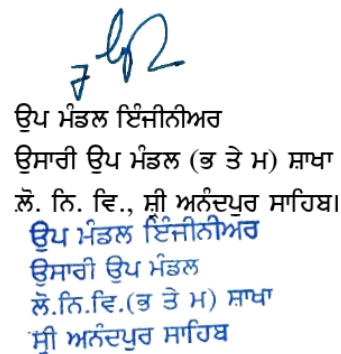 ਉਪ ਮੰਡਲ ਇੰਜੀਨੀਅਰ
ਉਸਾਰੀ ਉਪ ਮੰਡਲ (ਭ ਤੇ ਮ) ਸ਼ਾਖਾ
ਲੋ. ਨਿ. ਵਿ., ਸ਼੍ਰੀ ਅਨੰਦਪੁਰ ਸਾਹਿਬ।
ਉਪ ਮੰਡਲ ਇੰਜੀਨੀਅਰ
ਉਸਾਰੀ ਉਪ ਮੰਡਲ
ਲੋ.ਨਿ.ਵਿ.(ਭ ਤੇ ਮ) ਸ਼ਾਖਾ
ਸ਼੍ਰੀ ਅਨੰਦਪੁਰ ਸਾਹਿਬ